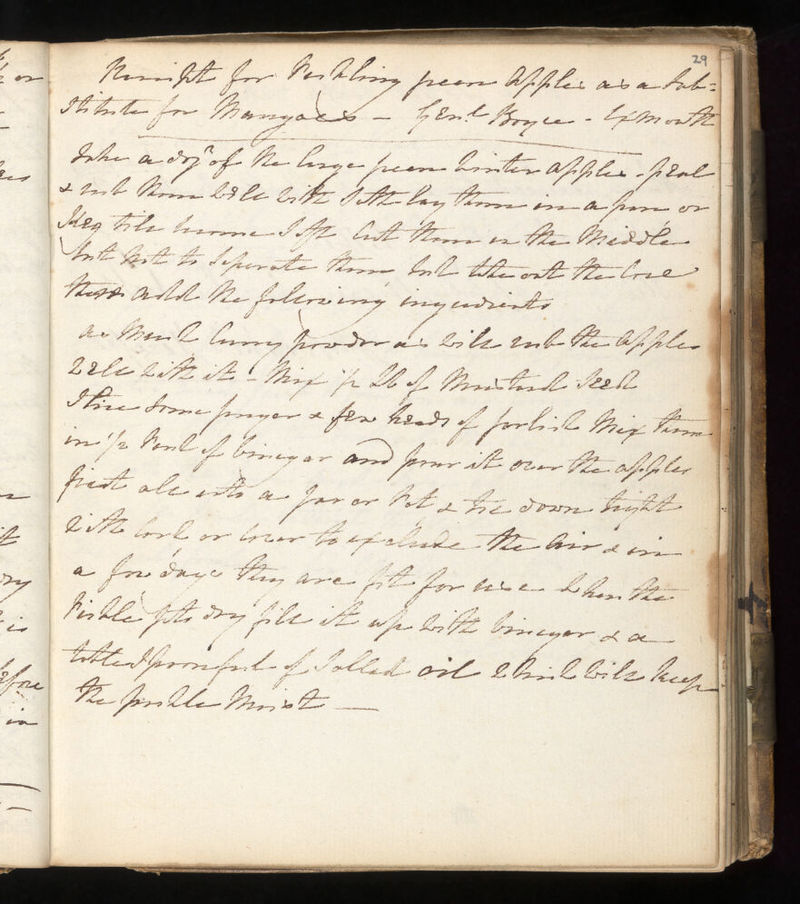 29
Receipt for Pickling green Apples as a Sub=
stitute for Mangoes - Genl. Boyce - Exmouth
Take a dozn of the large green Winter apples - peal
& rub them Well With Salt lay them in a pan or
till become Soft Cut them in the Middle
but not to Seperate them but take out the Core
then add the following ingredients
as Much Curry powder as Will rub the Apples
Well With it - Mix ½ lb of Mustard Seed
Slice Some ginger & few heads of garlick Mix them
in ½ Pint of Vinegar and pour it over the apples
first all into a Jar or Pot & tie down tight
With Cork or to exclude the Air & in
a few days they are fit for use When the
Pickle gets dry fill it up With Vinegar & a
table Spoonful of Sallad oil Which Will keep
the pickle Moist —
or
before
in